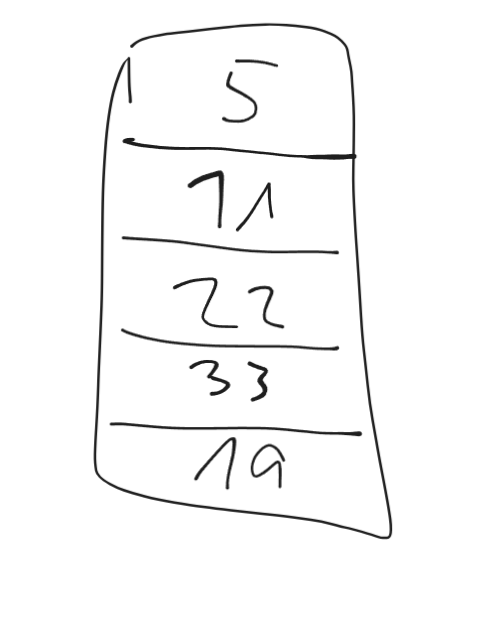 5
11
22
33
19